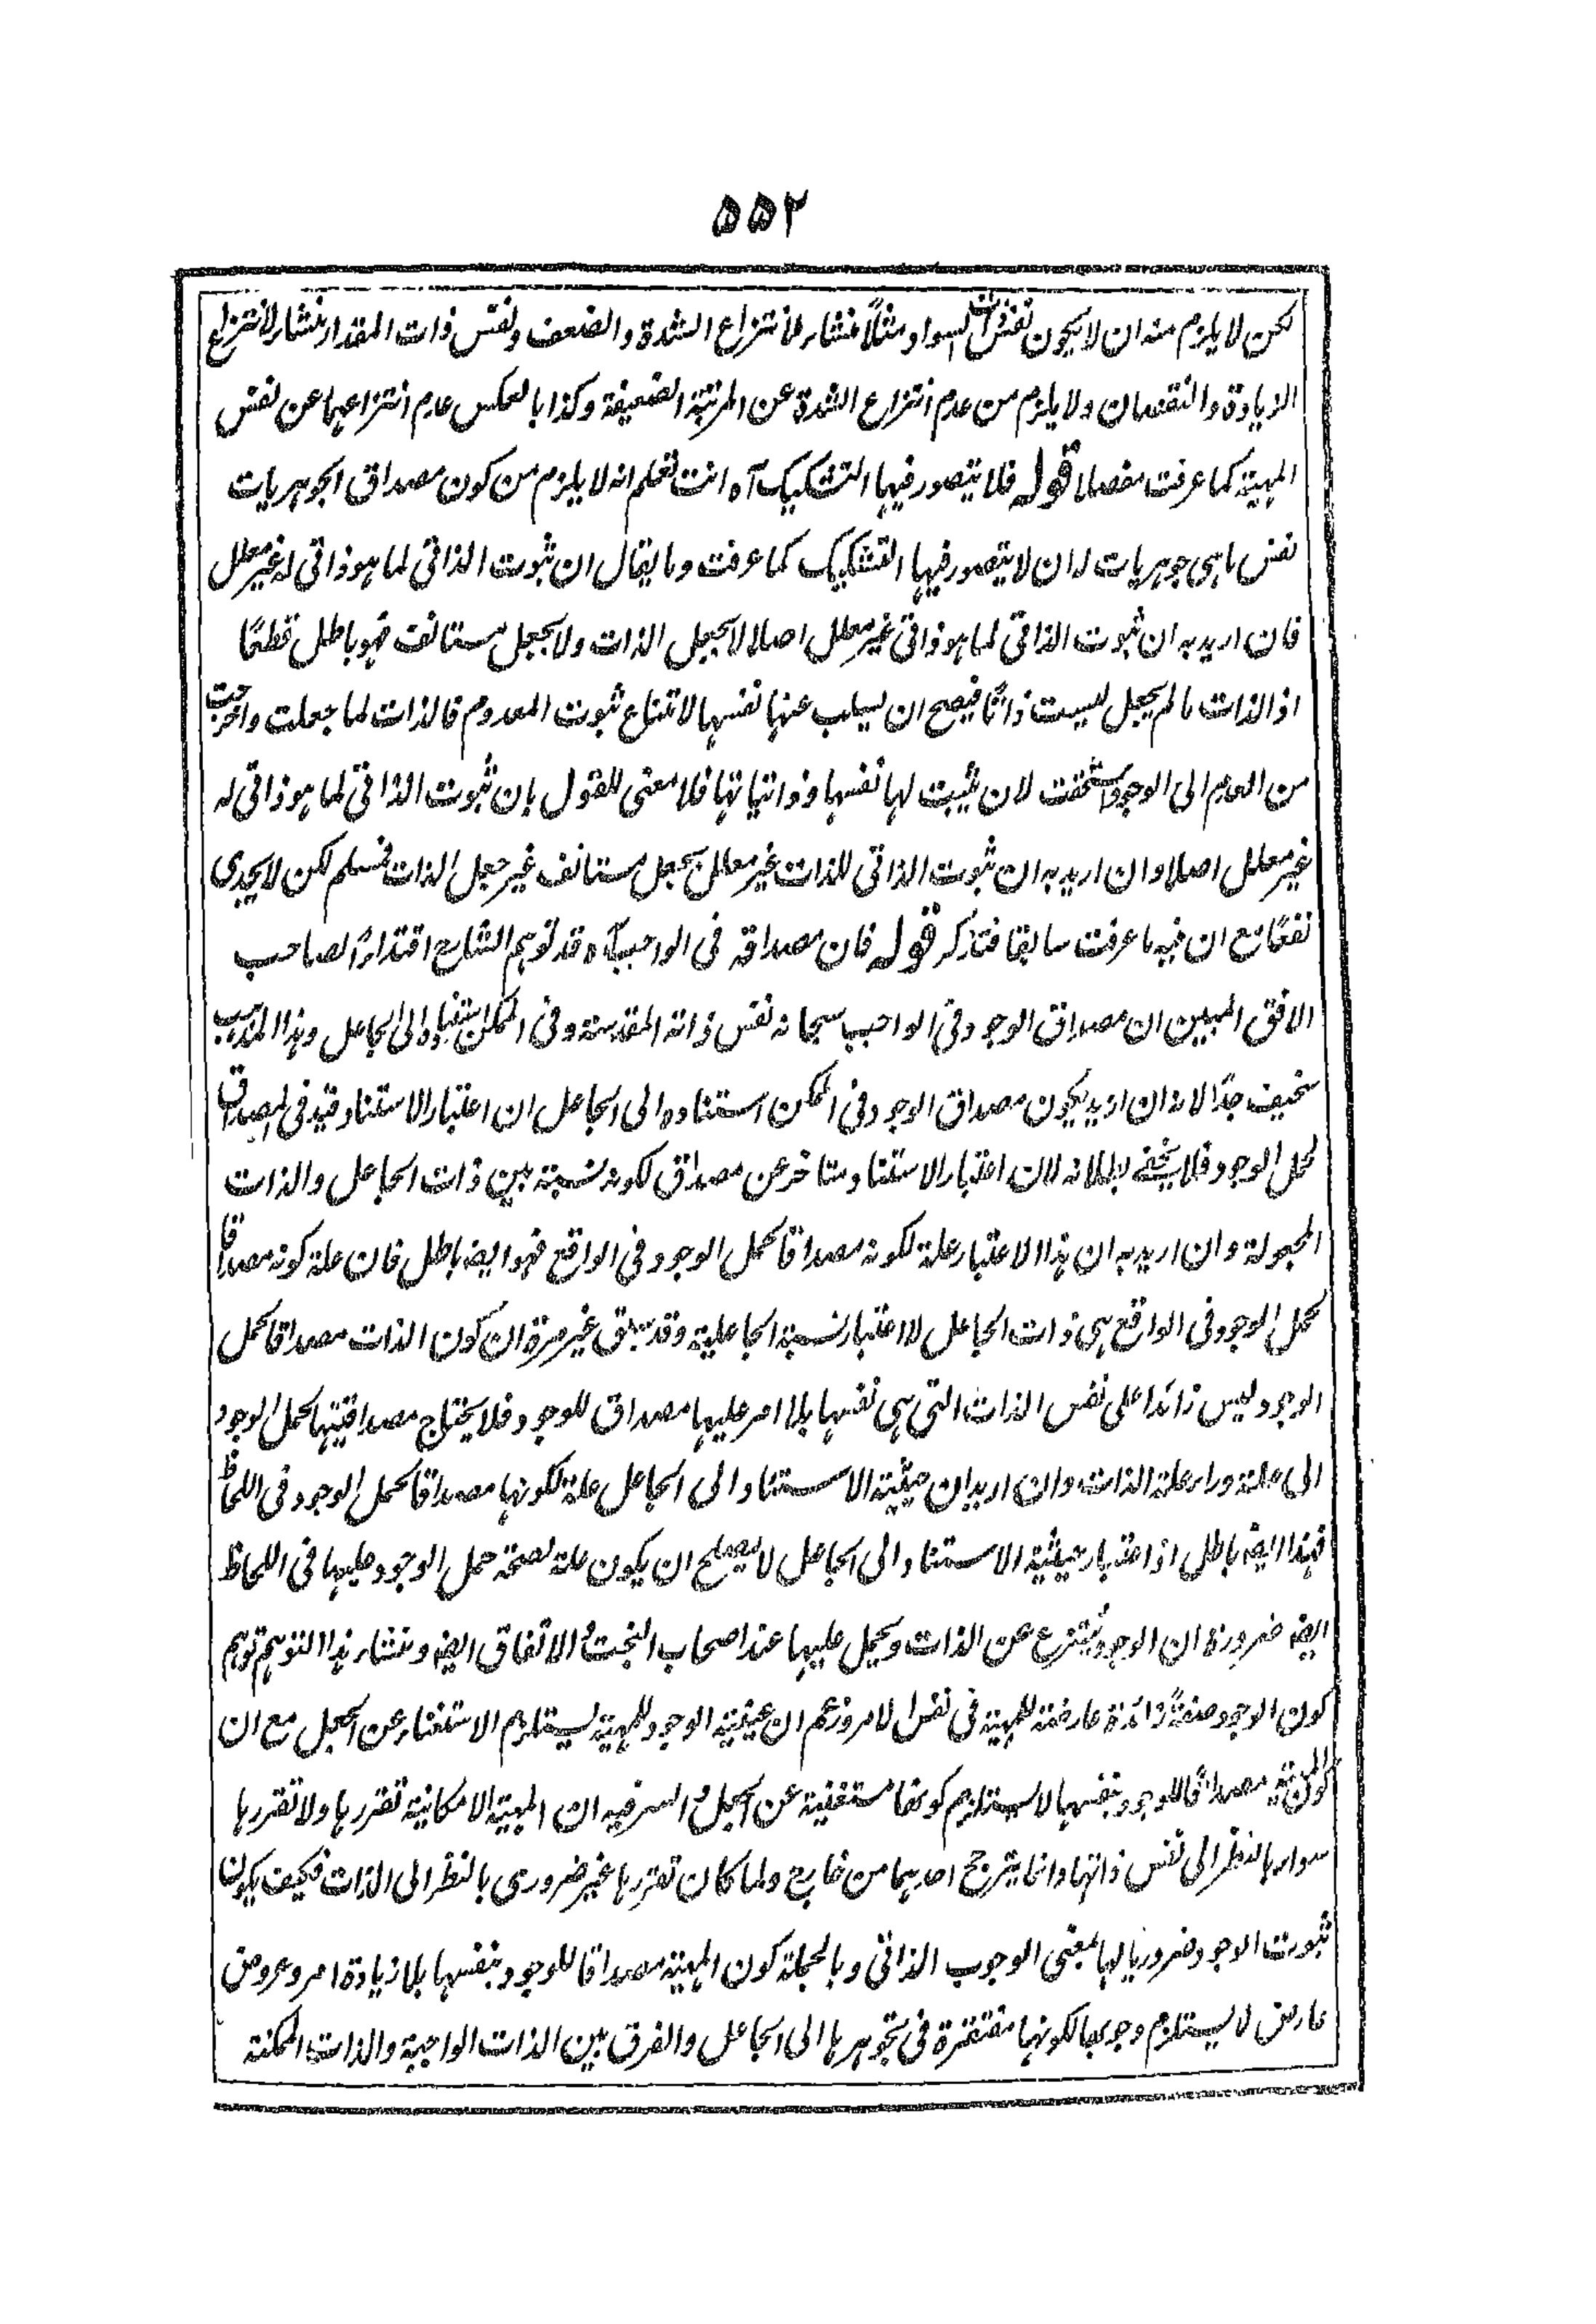 ۵۵۲
لكن لا يلزم منه ان لا يكون نفس ذات السواد مثلاً منشاء لانتزاع الشدة والضعف ونفس ذات المقدار منشاء لانتزاع
الزيادة والنقصان ولا يلزم من عدم انتزاع الشدة عن المرتبة الضعيفة وكذا بالعكس عدم انتزاعهما عن نفس
المهية كما عرفت مفصلا قوله فلا يتصور فيها التشكيك آه انت تعلم انه لا يلزم من كون مصداق الجوهريات
نفس ما هى جوهريات له ان لا يتصور فيها التشكيك كما عرفت وما يقال ان ثبوت الذاتى لما هو ذاتى له غير معلل
فان اريد به ان ثبوت الذاتى لما هو ذاتى غير معلل اصلا لا بجعل الذات ولا بجعل مستانف فهو باطل قطعًا
اذ الذات ما لم يجعل ليست ذاتًا فيصح ان يسلب عنها نفسها لامتناع ثبوت المعدوم فالذات لما جعلت واخرجت
من العدم الى الوجود استحقت لان يثبت لها نفسها وذاتياتها فلا معنى للقول بان ثبوت الذاتى لما هو ذاتى له
غير معلل اصلا وان اريد به ان ثبوت الذاتى للذات غير معلل بجعل مستانف غير جعل الذات فمسلم لكن لا يجدى
نفعًا مع ان فيه ما عرفت سابقا فتذكر قوله فان مصداقه فى الواجب آه قد توهم الشارح اقتداءً لصاحب
الافق المبين ان مصداق الوجود فى الواجب سبحانه نفس ذاته المقدسة وفى الممكن استناده الى الجاعل وهذا المذهب
سخيف جدًا لانه ان اريد بكون مصداق الوجود فى الممكن استناده الى الجاعل ان اعتبار الاستناد قيد فى المصداق
لحمل الوجود فلا يخفى بطلانه لان اعتبار الاستناد متاخر عن مصداق لكونه نسبة بين ذات الجاعل والذات
المجعولة وان اريد به ان هذا الاعتبار علة لكونه مصداقا لحمل الوجود فى الواقع فهو ايضه باطل فان علة كونه مصداقا
لحمل الوجود فى الواقع هى ذات الجاعل لا اعتبار نسبة الجاعلية وقد سبق غير مرة ان كون الذات مصداقا لحمل
الوجود ليس زائدا على نفس الذات التى هى نفسها بلا امر عليها مصداق للوجود فلا يحتاج مصداقيتها لحمل الوجود
الى علة وراء علة الذات وان اريد ان حيثية الاستناد الى الجاعل علة لكونها مصداقا لحمل الوجود فى اللحاظ
فهذا ايضه باطل اذ اعتبار حيثية الاستناد الى الجاعل لا يصلح ان يكون علة لصحة حمل الوجود عليها فى اللحاظ
ايضه ضرورة ان الوجود ينتزع عن الذات ويحمل عليها عند اصحاب البخت والاتفاق ايضه ومنشاء هذا التوهم توهم
كون الوجود صفةً زائدة عارضة للمهية فى نفس الامر وزعم ان عينية الوجود للمهية يستلزم الاستغناء عن الجعل مع ان
كون المهية مصداقًا للوجود بنفسها لا يستلزم كونها مستغنية عن الجعل والسر فيه ان المهية الامكانية تقررها ولا تقررها
سواء بالنظر الى نفس ذاتها وانما يترجح احدهما من خارج ولما كان تقررها غير ضرورى بالنظر الى الذات فكيف يكون
ثبوت الوجود ضروريا لها بمعنى الوجوب الذاتى وبالجملة كون المهية مصداقا للوجود بنفسها بلا زيادة امر وعروض
عارض لا يستلزم وجوبها لكونها مفتقرة فى تجوهرها الى الجاعل والفرق بين الذات الواجبة والذات الممكنة